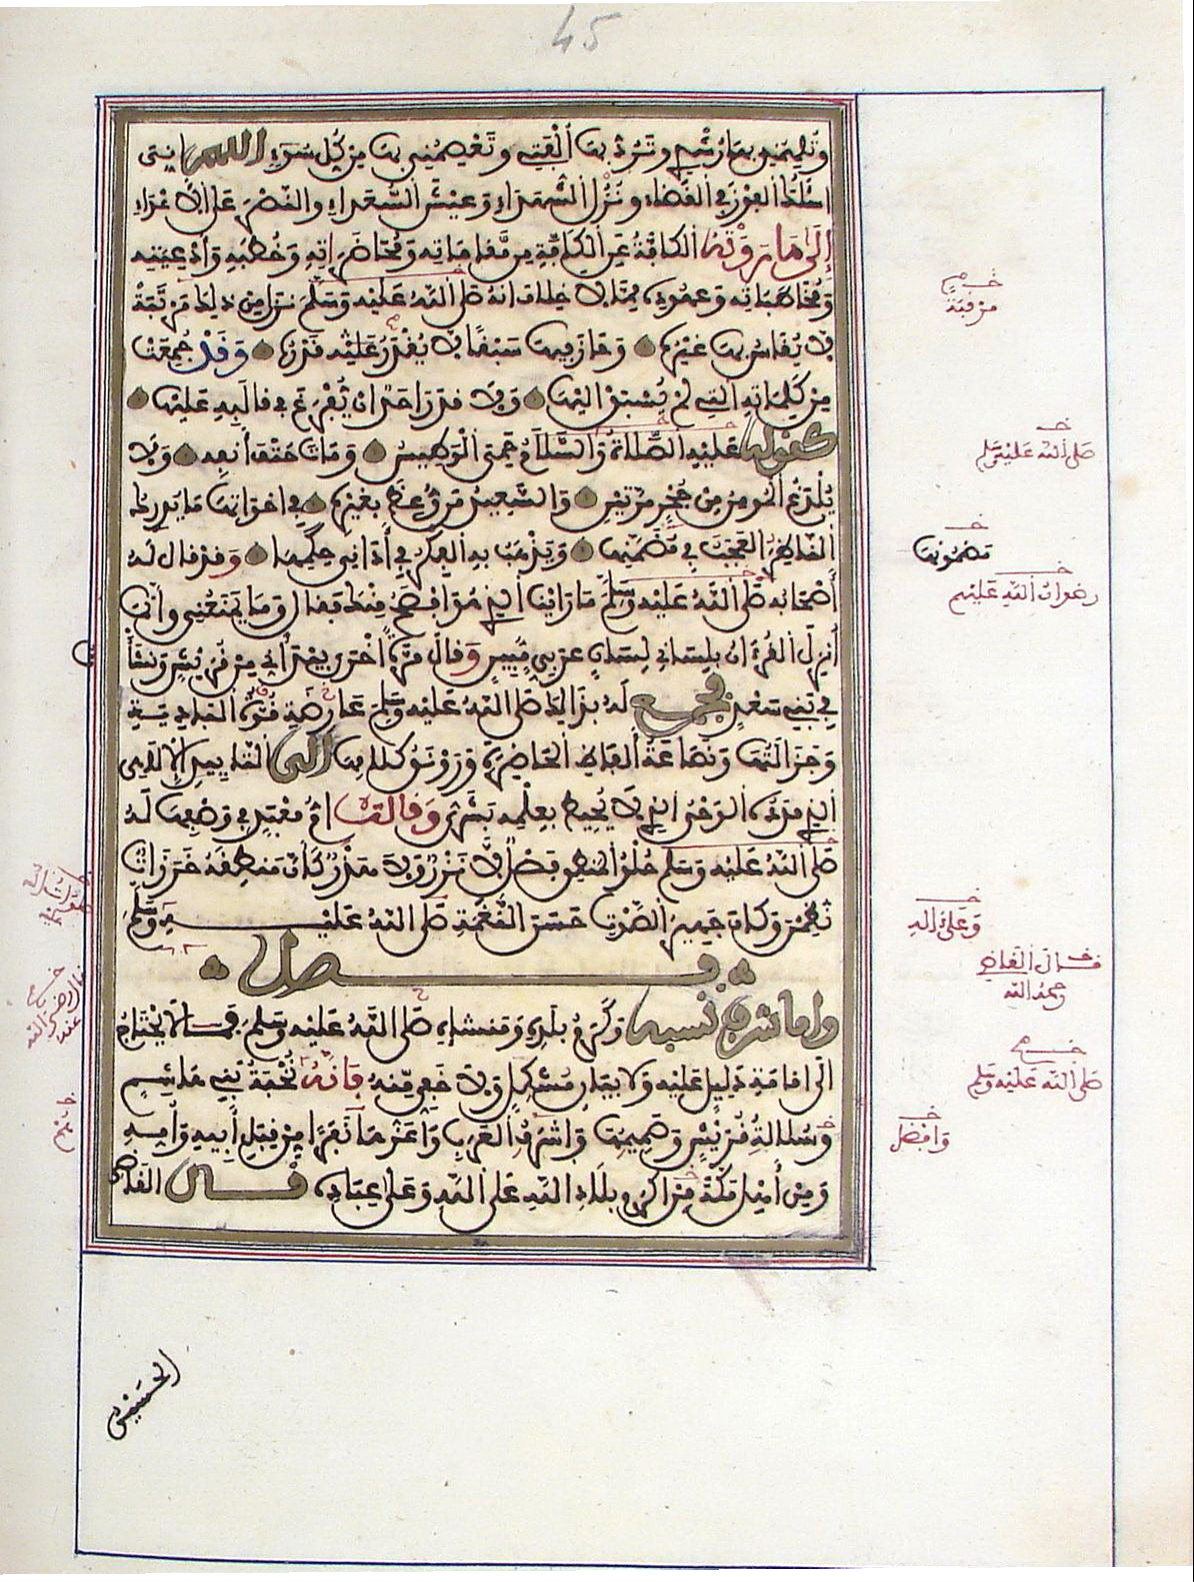 45
وتلهمني بها رشدي وترد بها ألفتي وتعصمني بها من كل سوء اللهم إني
أسألك الفوز في القضاء ونزل الشهداء وعيش السعداء والنصر على الأعداء
إلى ما روته الكافة عن الكافة من مقاماته ومحاضراته وخطبه وأدعيته
ومخاطباته وعهوده مما لا خلاف أنه صلى الله عليه وسلم نزل من ذلك مرتبة
لا يقاس بها غيره وحاز فيها سبقا لا يقدر قدره وقد جمعت
من كلماته التي لم يسبق إليها ولا قدر أحد أن يفرغ في قالبه عليها
كقوله عليه الصلاة والسلام حمي الوطيس ومات حتف أنفه ولا
يلدغ المومن من جحر مرتين والسعيد من وعظ بغيره في أخواتها ما يدرك
الناظر العجب في مضمنها ويذهب به الفكر في أداني حكمها وقد قال له
أصحابه صلى الله عليه وسلم ما رأينا الذي هو أفصح منك فقال وما يمنعني وإنما
أنزل القرءان بلساني لسان عربي مبين وقال مرة أخرى بيد أني من قريش ونشأت
في بني سعد فجمع له بذالك صلى الله عليه وسلم عارضة قوة البادية
وجزالتها ونصاعة ألفاظ الحاضرة ورونق كلامها إلى التاييد الإلاهي
الذي مدده الوحي الذي لا يحيط بعلمه بشري وقالت أم معبد في وصفها له
صلى الله عليه وسلم حلو المنطق فصل لا نزر ولا هذر كأن منطقه خرزات
نظمن وكان جهير الصوت حسن النغمة صلى الله عليه وسلم
فصل
وأما شرف نسبه وكرم بلده ومنشإه صلى الله عليه وسلم فما لا يحتاج
إلى إقامة دليل عليه ولا بيان مشكل ولا خفي منه فإنه نخبة بني هاشم
وسلالة قريش وصميمها وأشرف العرب وأعزهم نفرا من قبل أبيه وأمه
ومن أهل مكة من أكرم بلاد الله على الله وعلى عباده قال القاضي
مرقبة
صلى الله عليه وسلم
مضمونها
رضوان الله عليهم
وعلى ءاله
قال القاضي
رحمه الله
صلى الله عليه وسلم
وأفضل
الحسين